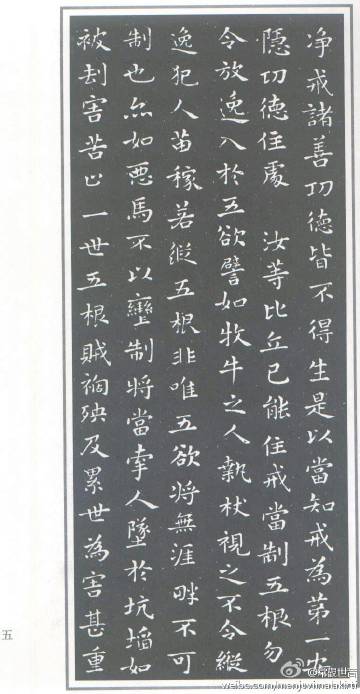 净戒諸善功德皆不得生是以當知戒為第一安
隱功德住處　汝等比丘已能住戒當制五根勿
令放逸入於五欲譬如牧牛之人執杖視之不令縱
逸犯人苗稼若縱五根非唯五欲將無涯畔不可
制也亦如惡馬不以轡制將當牽人墜於坑埳如
被刦害苦止一世五根賊禍殃及累世為害甚重
五
weibo.com/manjuvimalakirti